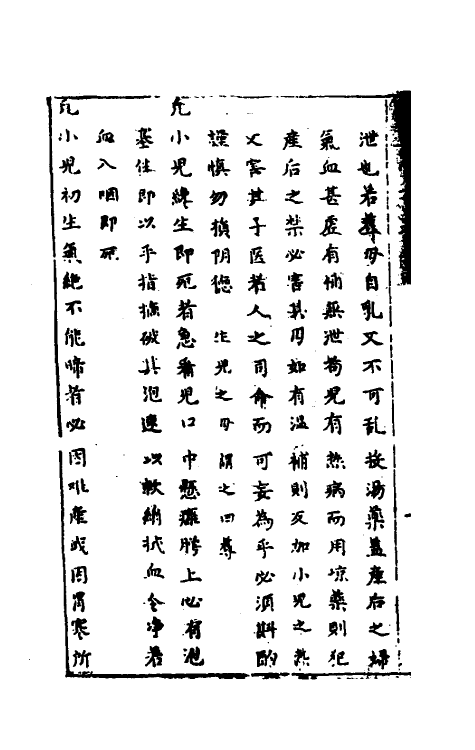 泄也若尊母自乳又不可乱投湯藥蓋產后之婦
氣血甚虛有補無泄苟兒有热病而用凉藥則犯
產后之禁必害其母如有温補則反加小兒之热
又害其子医者人之司命而可妄為乎必須斟酌
謹慎勿損阴德 生兒之母謂之曰尊
凡小兒纔生即死者急看兒口中懸癰腭上必有泡
甚佳即以手指摘破其泡速以軟綿拭血令净若
血入咽即死
凡小兒初生氣絶不能啼者必因难產或因胃寒所